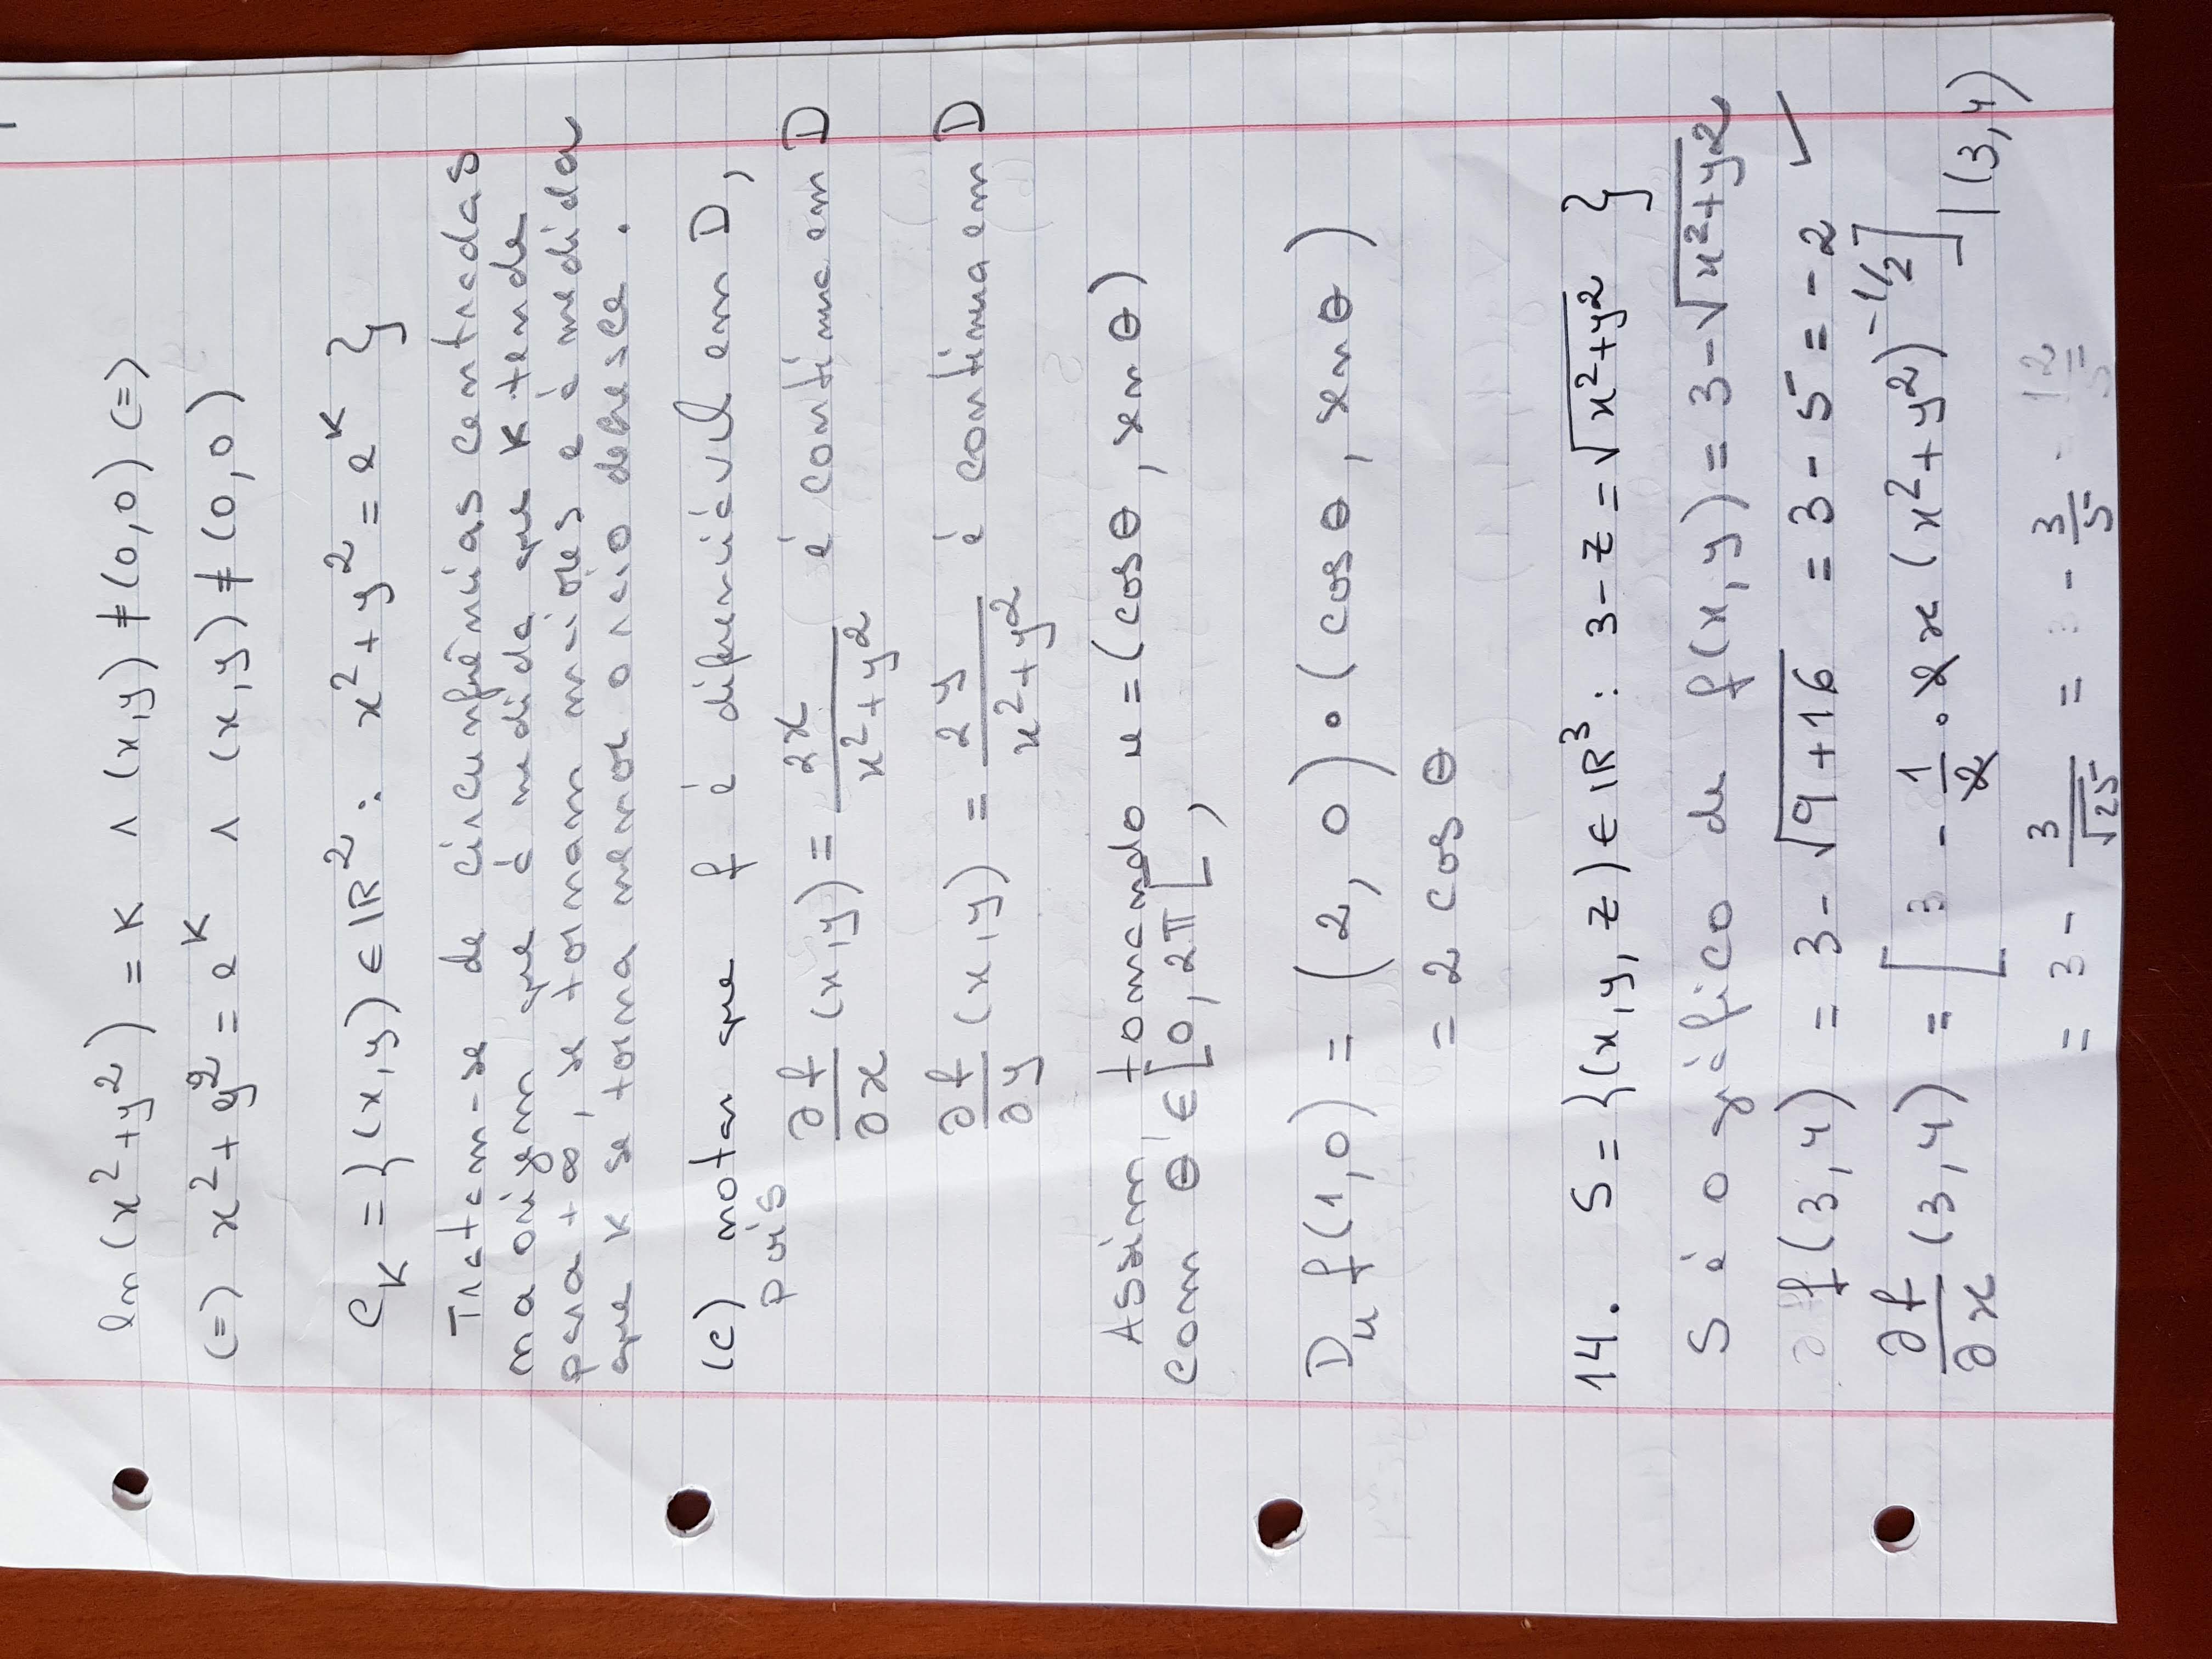 ln(x²+y²) = K ∧ (x,y) ≠ (0,0) (=)
(=) x²+y² = e^K ∧ (x,y) ≠ (0,0)
C_K = {(x,y) ∈ ℝ² : x²+y² = e^K }
Tratam-se de circunfrências centradas
na origem que à medida que K tende
para +∞, se tornam maiores e à medida
que K se torna menor o raio decresce.
(c) notar que f é diferenciável em D,
pois
∂f/∂x (x,y) = 2x/(x²+y²) é contínua em D
∂f/∂y (x,y) = 2y/(x²+y²) é contínua em D
Assim, tomando u = (cos θ, sen θ)
com θ ∈ [0, 2π[,
D_u f(1,0) = (2, 0) • (cos θ, sen θ)
= 2 cos θ
14. S = {(x,y,z) ∈ ℝ³ : 3-z = √(x²+y²) }
S é o gráfico de f(x,y) = 3-√(x²+y²)
f(3,4) = 3-√(9+16) = 3-5 = -2 ✓
∂f/∂x (3,4) = [ - 1/2 • 2x (x²+y²)^(-1/2) ] |(3,4)
= 3 - 3/√25 = - 3/5